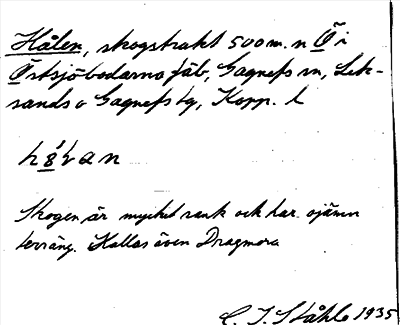 Hålen, skogstrakt 500 m. n Ö i
Örtsjöbodarna fäb, Gagnefs sn, Lek-
sands o Gagnefs tg, Kopp. l
Skogen är mycket rank och har ojämn
terräng. Kallas även Dragmora
C. I. Ståhle 1935